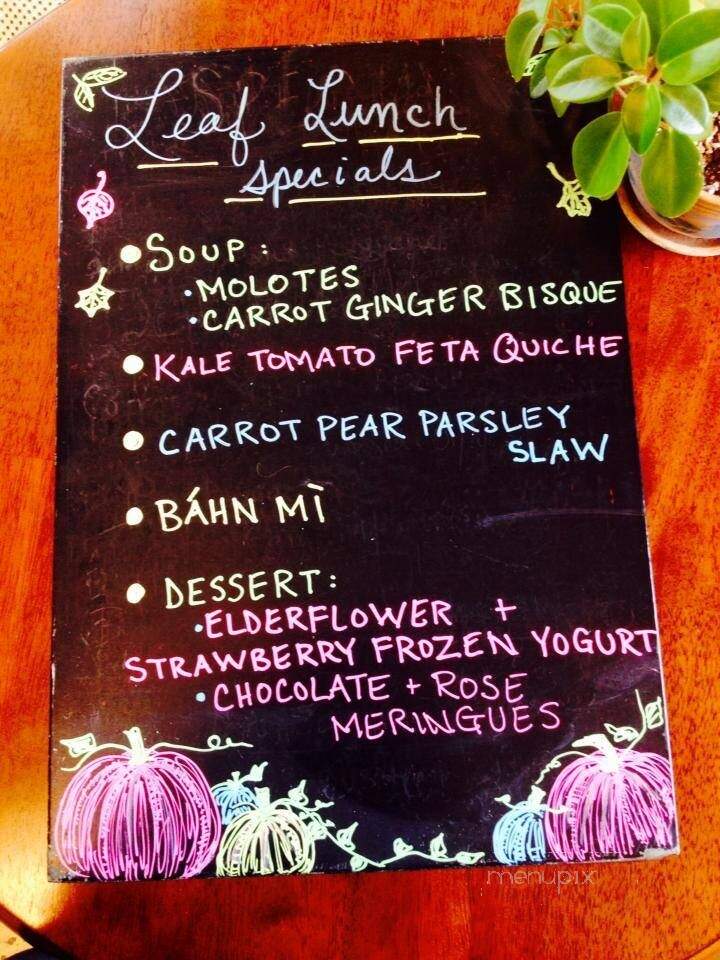 Leaf Lunch
specials
SOUP:
MOLOTES
CARROT GINGER BISQUE
KALE TOMATO FETA QUICHE
CARROT PEAR PARSLEY
SLAW
BÁHN MÌ
DESSERT:
ELDERFLOWER +
STRAWBERRY FROZEN YOGURT
CHOCOLATE + ROSE
MERINGUES
menupix